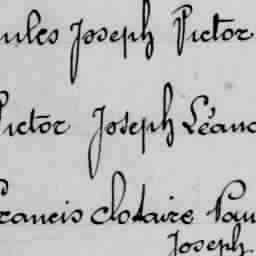 ules Joseph Victor
Victor Joseph Léand
Francis Clotaire Pau
Joseph